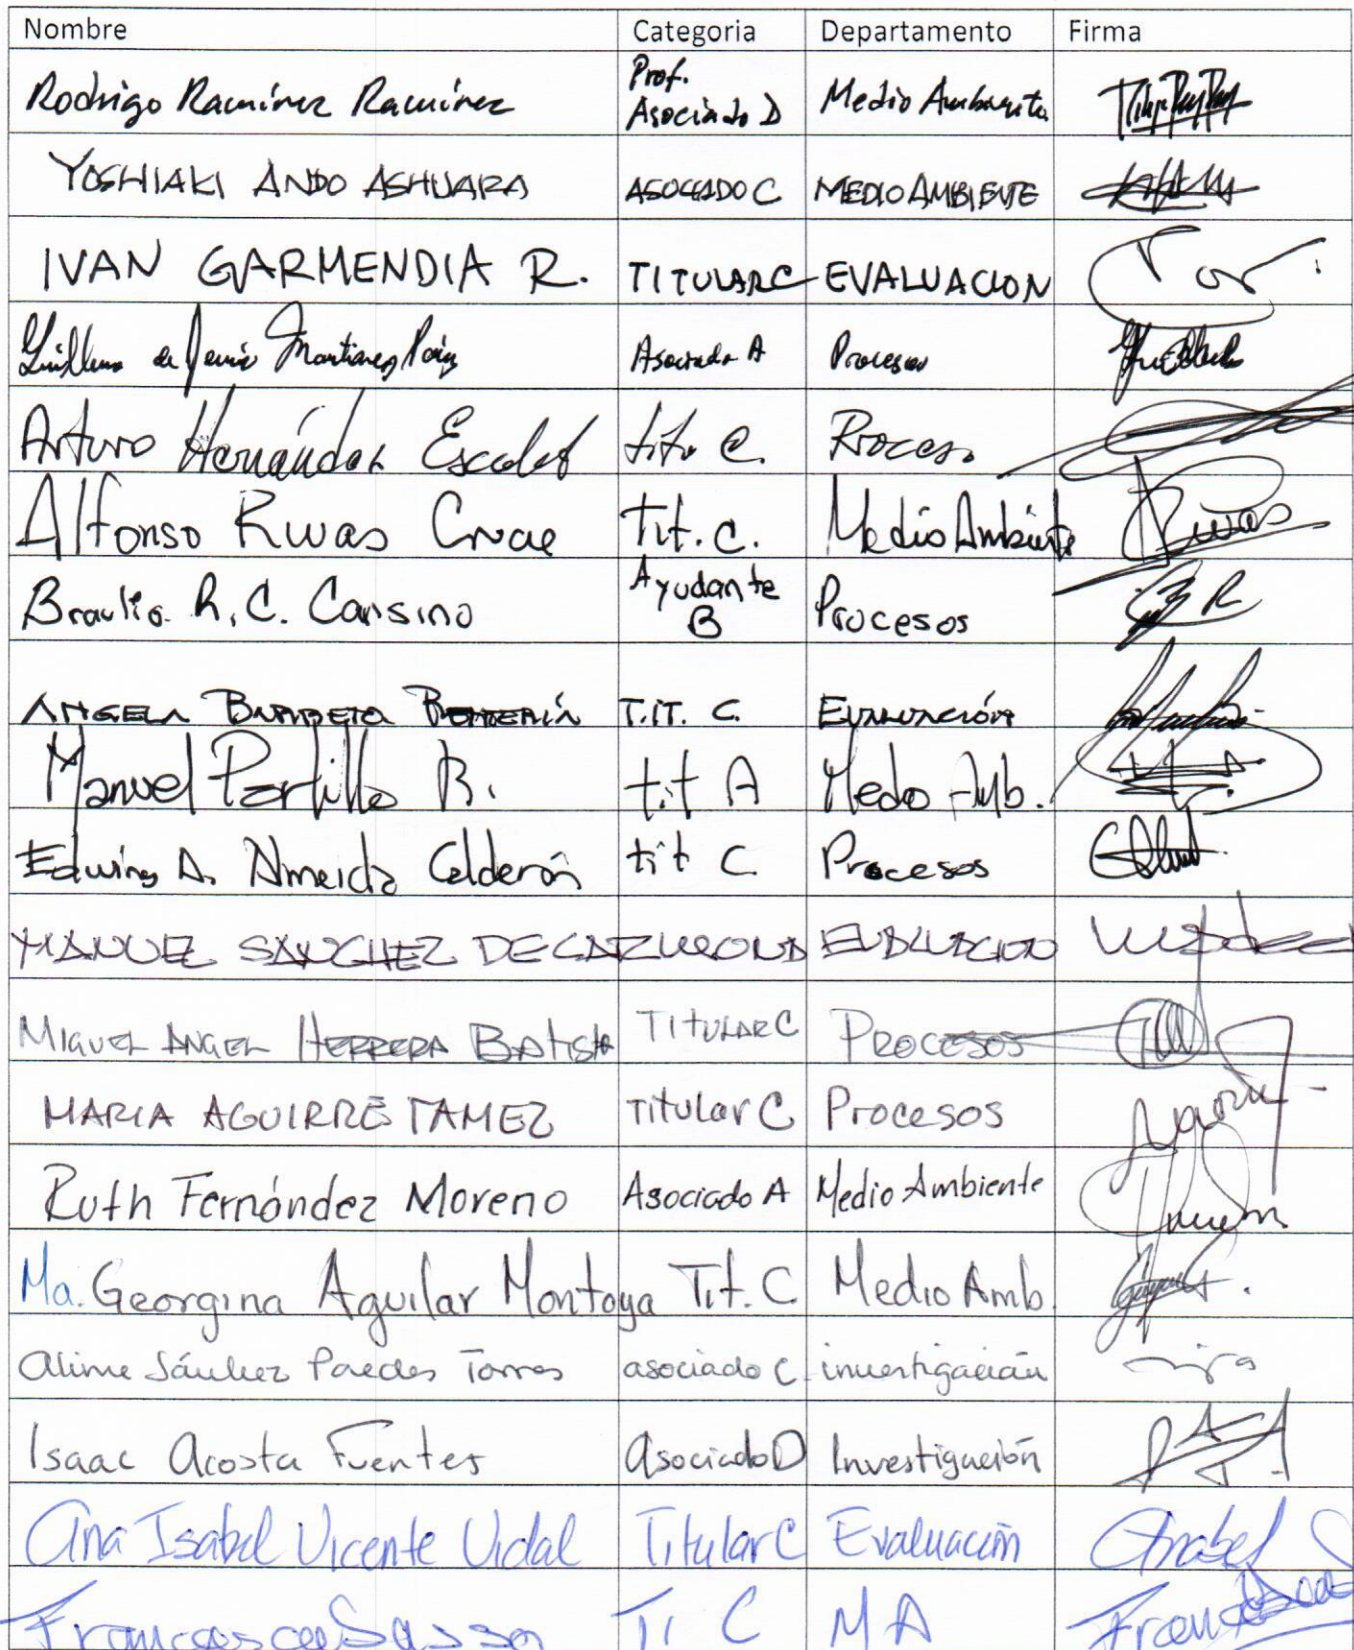 Nombre Categoria Departamento Firma
Rodrigo Ramírez Ramírez Prof. Asociado D Medio Ambiente
YOSHIAKI ANDO ASHIJARA ASOCIADO C MEDIO AMBIENTE
IVAN GARMENDIA R. TITULAR C EVALUACION
Guillermo de Jesús Martínez Asociado A Procesos
Arturo Hernández Escobet C. Proceso
Alfonso Rivas Cruces Tit. C. Medio Ambiente Rivas
Braulio R.C. Cansino Ayudante B Procesos
ANGELA BARRETO TIT. C. EVALUACIÓN
Manuel Portillo B. tit A Medio Amb.
Edwing A. Almeida Calderón tit C Procesos
MANUEL SANCHEZ DE CARMONA EVALUACION
MIGUEL ANGEL HERRERA BATISTA TITULAR C PROCESOS
MARIA AGUIRRE TAMEZ Titular C Procesos
Ruth Fernández Moreno Asociado A Medio Ambiente
Ma. Georgina Aguilar Montoya Tit. C. Medio Amb.
Alinne Sánchez Paredes Torres asociado C investigación
Isaac Acosta Fuentes asociado D Investigación
Ana Isabel Vicente Vidal Titular C Evaluación Anabel
Francesca Sasso Ti C MA